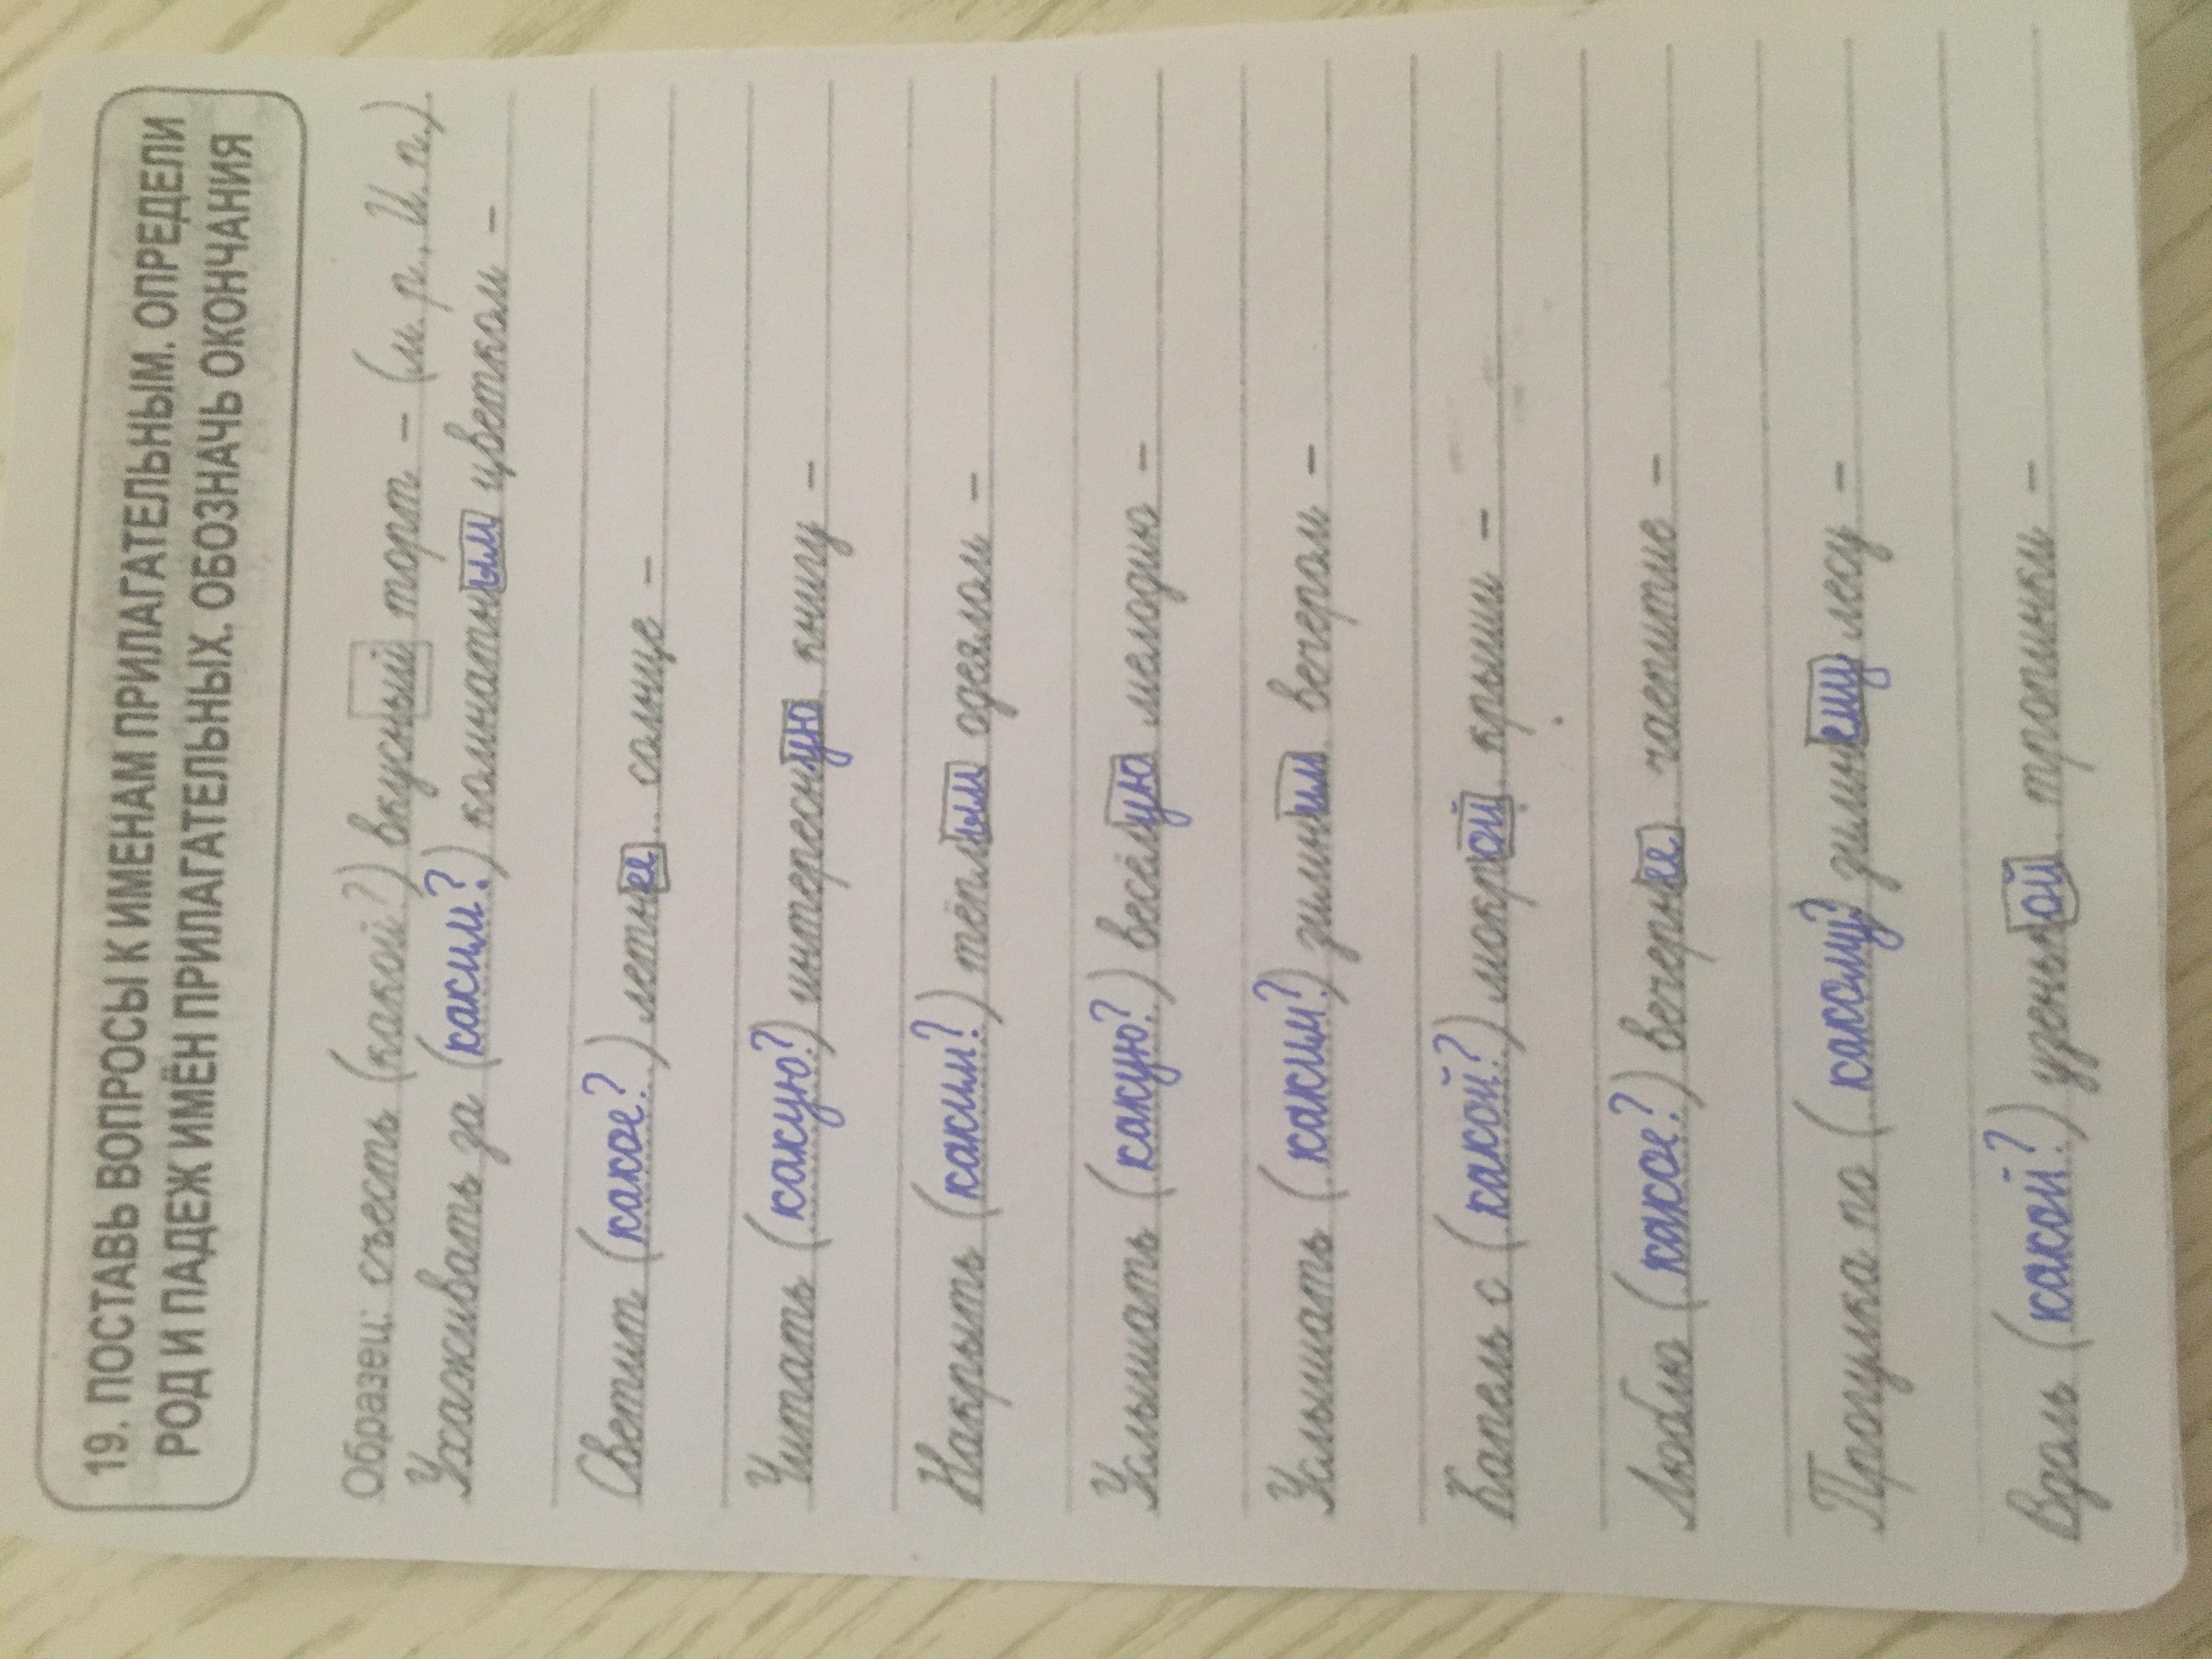 19. ПОСТАВЬ ВОПРОСЫ К ИМЕНАМ ПРИЛАГАТЕЛЬНЫМ. ОПРЕДЕЛИ
РОД И ПАДЕЖ ИМЁН ПРИЛАГАТЕЛЬНЫХ. ОБОЗНАЧЬ ОКОНЧАНИЯ
Образец: съесть (какой?) вкусный торт – (м. р., И. п.).
Ухаживать за (каким?) комнатным цветком –
Светит (какое?) летнее солнце –
Читать (какую?) интересную книгу –
Накрыть (каким?) тёплым одеялом –
Услышать (какую?) весёлую мелодию –
Услышать (каким?) зимним вечером –
Капель с (какой?) мокрой крыши –
Люблю (какое?) вечернее чаепитие –
Прогулка по (какому?) зимнему лесу –
Вдоль (какой?) узенькой тропинки –